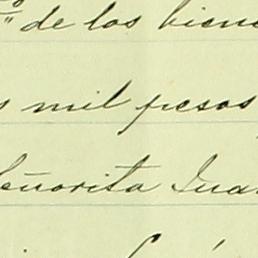 de los biene
mil pesos
eñorita Jua